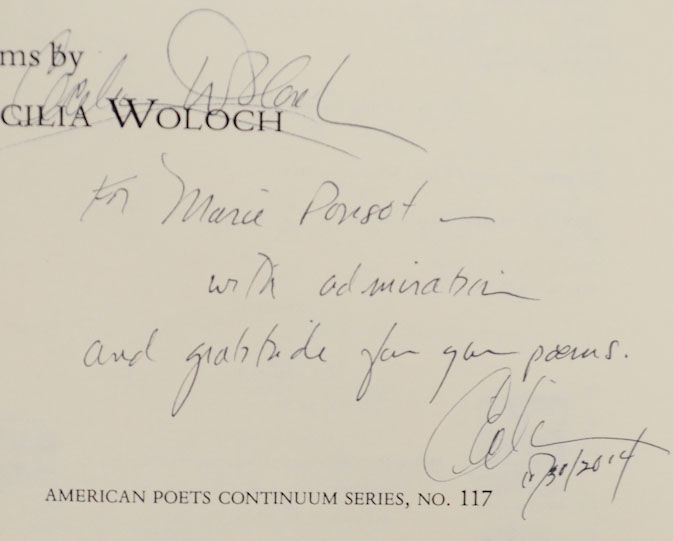 ms by
Cecilia Woloch
CILIA WOLOCH
For Marie Ponsot —
with admiration
and gratitude for your poems.
Cecilia
/30/2014
AMERICAN POETS CONTINUUM SERIES, NO. 117